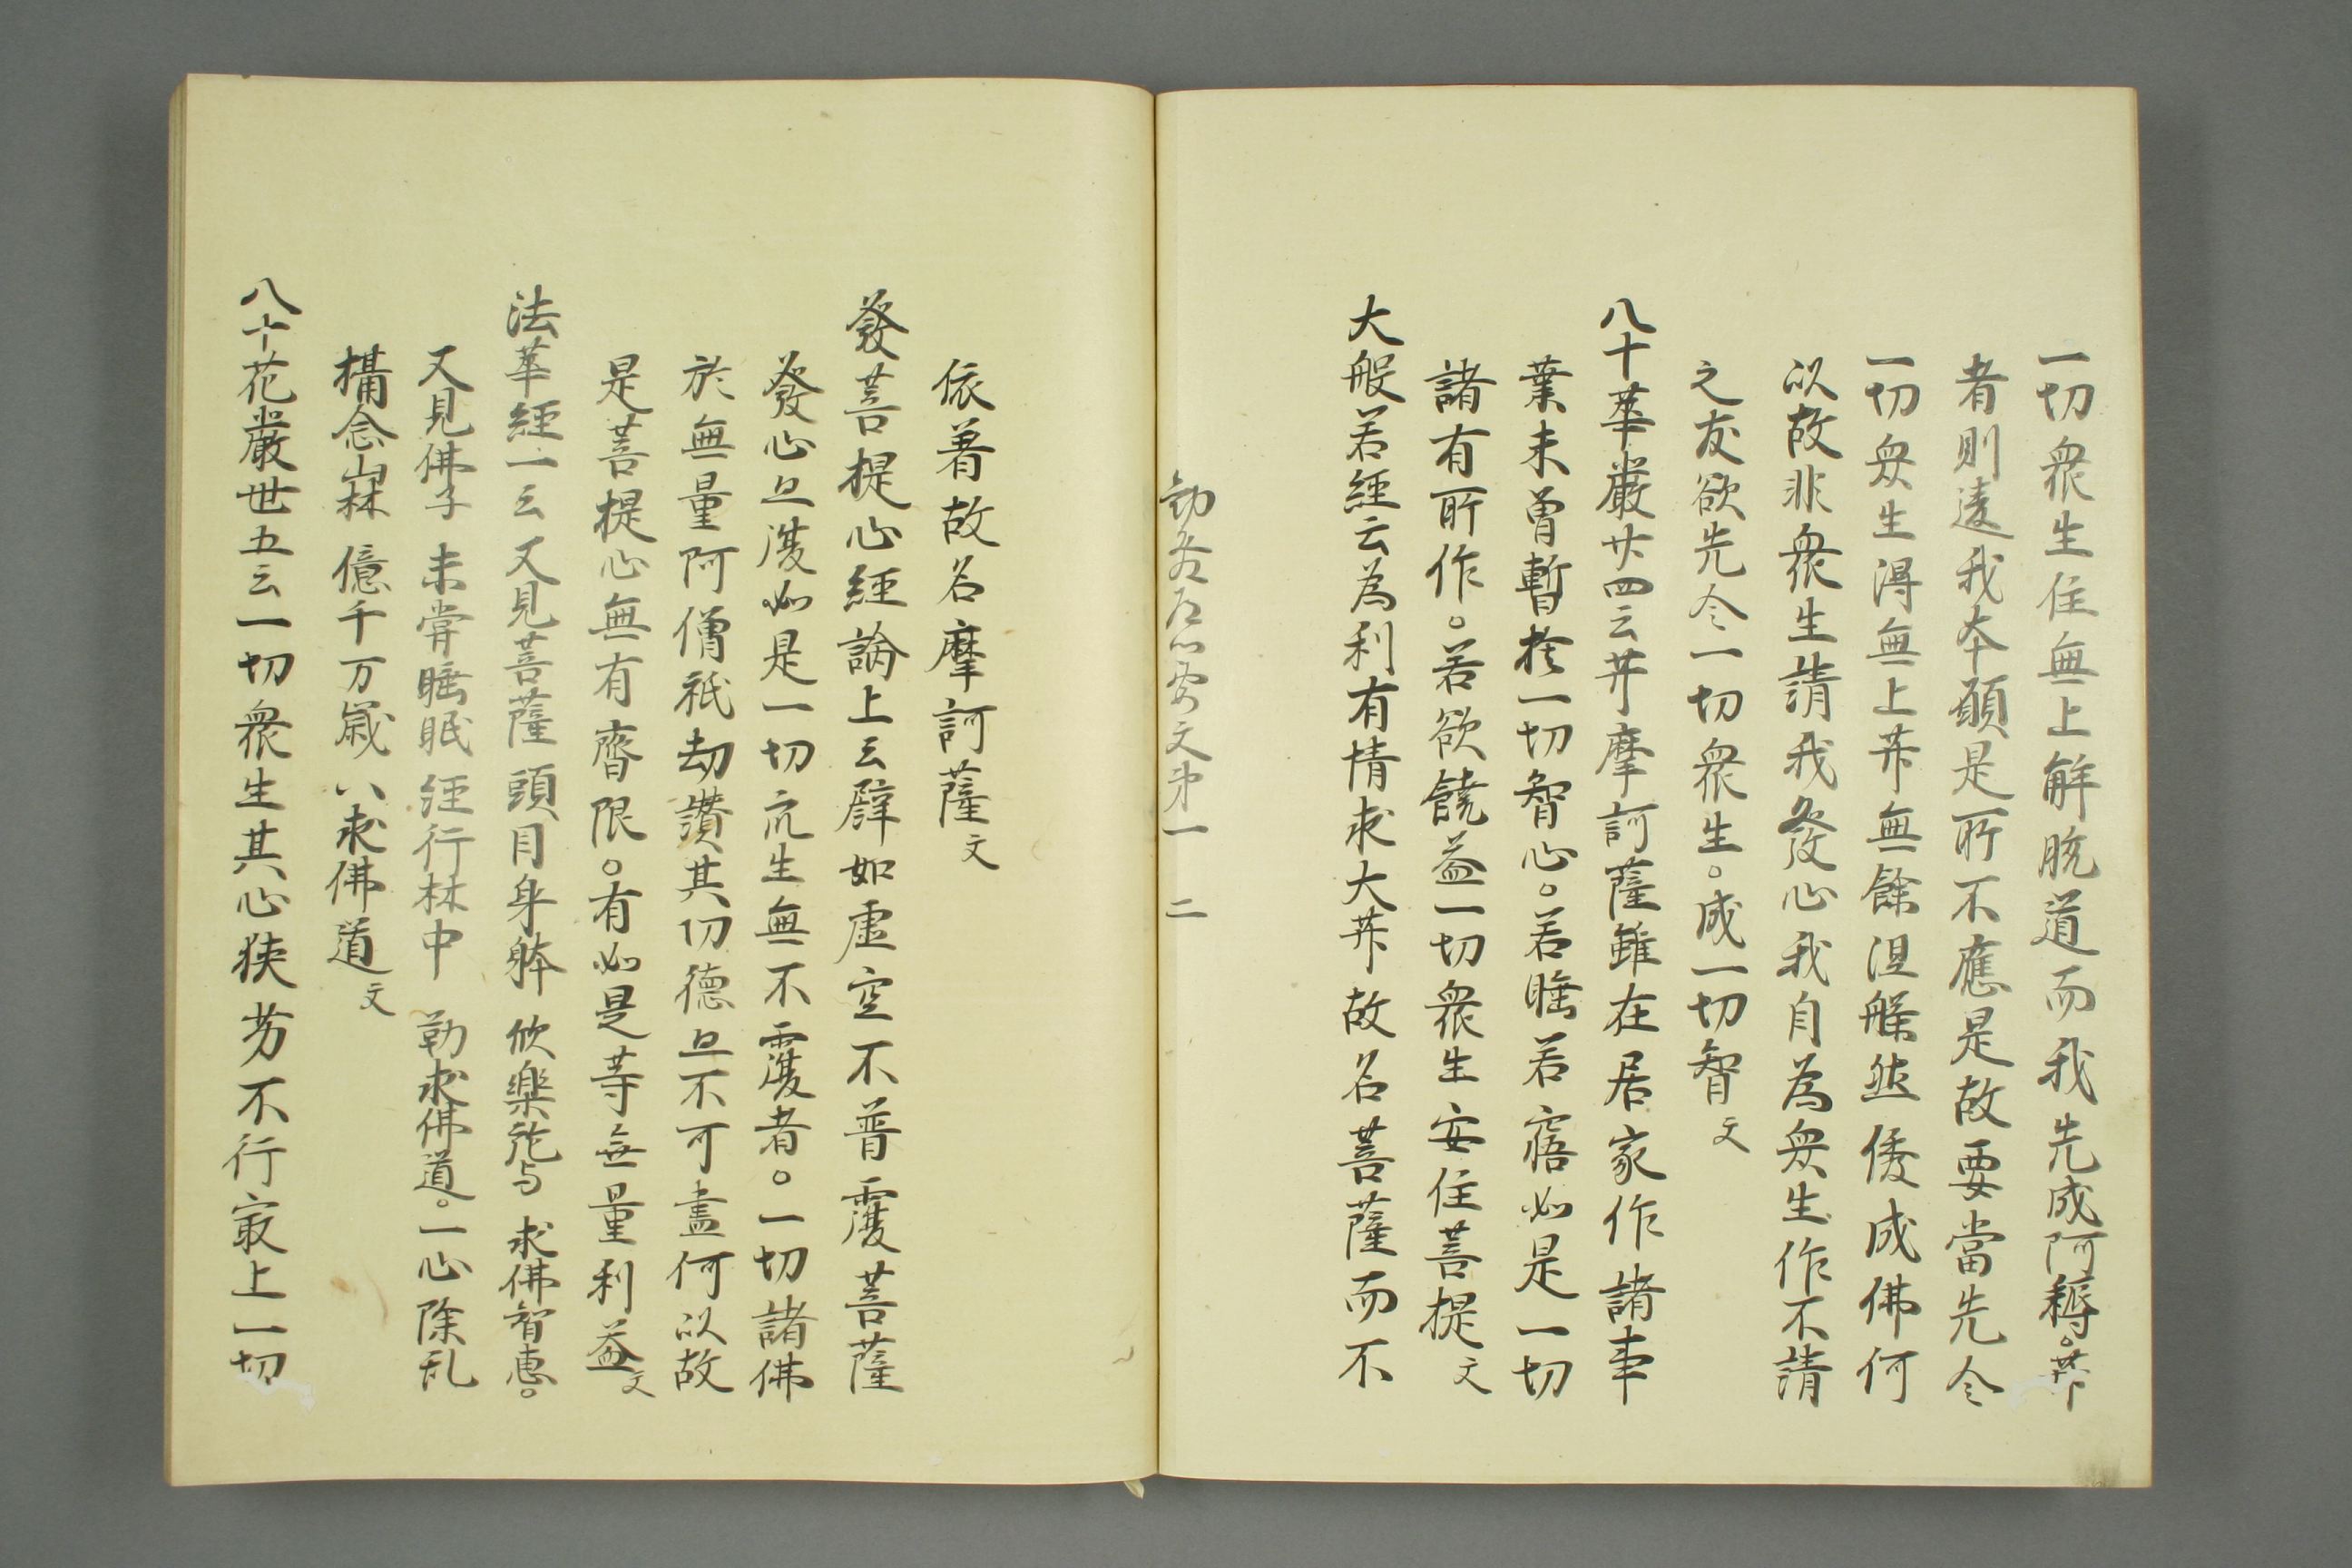 一切衆生住無上解脱道而我先成阿耨。𦬇
者則違我本願是所不應是故要當先令
一切衆生得無上𦬇無餘涅槃然後成佛何
以故非衆生請我發心我自為衆生作不請
之友欲先令一切衆生。成一切智文
八十華嚴廿四云𦬇摩訶薩雖在居家作諸事
業未曽暫捨一切智心。若睡若寤如是一切
諸有所作。若欲饒益一切衆生安住菩提文
大般若經云為利有情求大𦬇故名菩薩而不
要文第一 二
依着故名摩訶薩文
發菩提心經論上云譬如虚空不普覆菩薩
發心亦復如是一切衆生無不覆者。一切諸佛
於無量阿僧祇劫讃其功德亦不可盡何以故
是菩提心無有齊限。有如是等無量利益文
法華經一云又見菩薩 頭目身躰 欣樂施与 求佛智恵。
又見佛子 未甞睡眠 経行林中 勤求佛道。一心除乱
攝念山林 億千万歳 以求佛道文
八十花嚴卅五云一切衆生其心狭劣不行㝡上一切